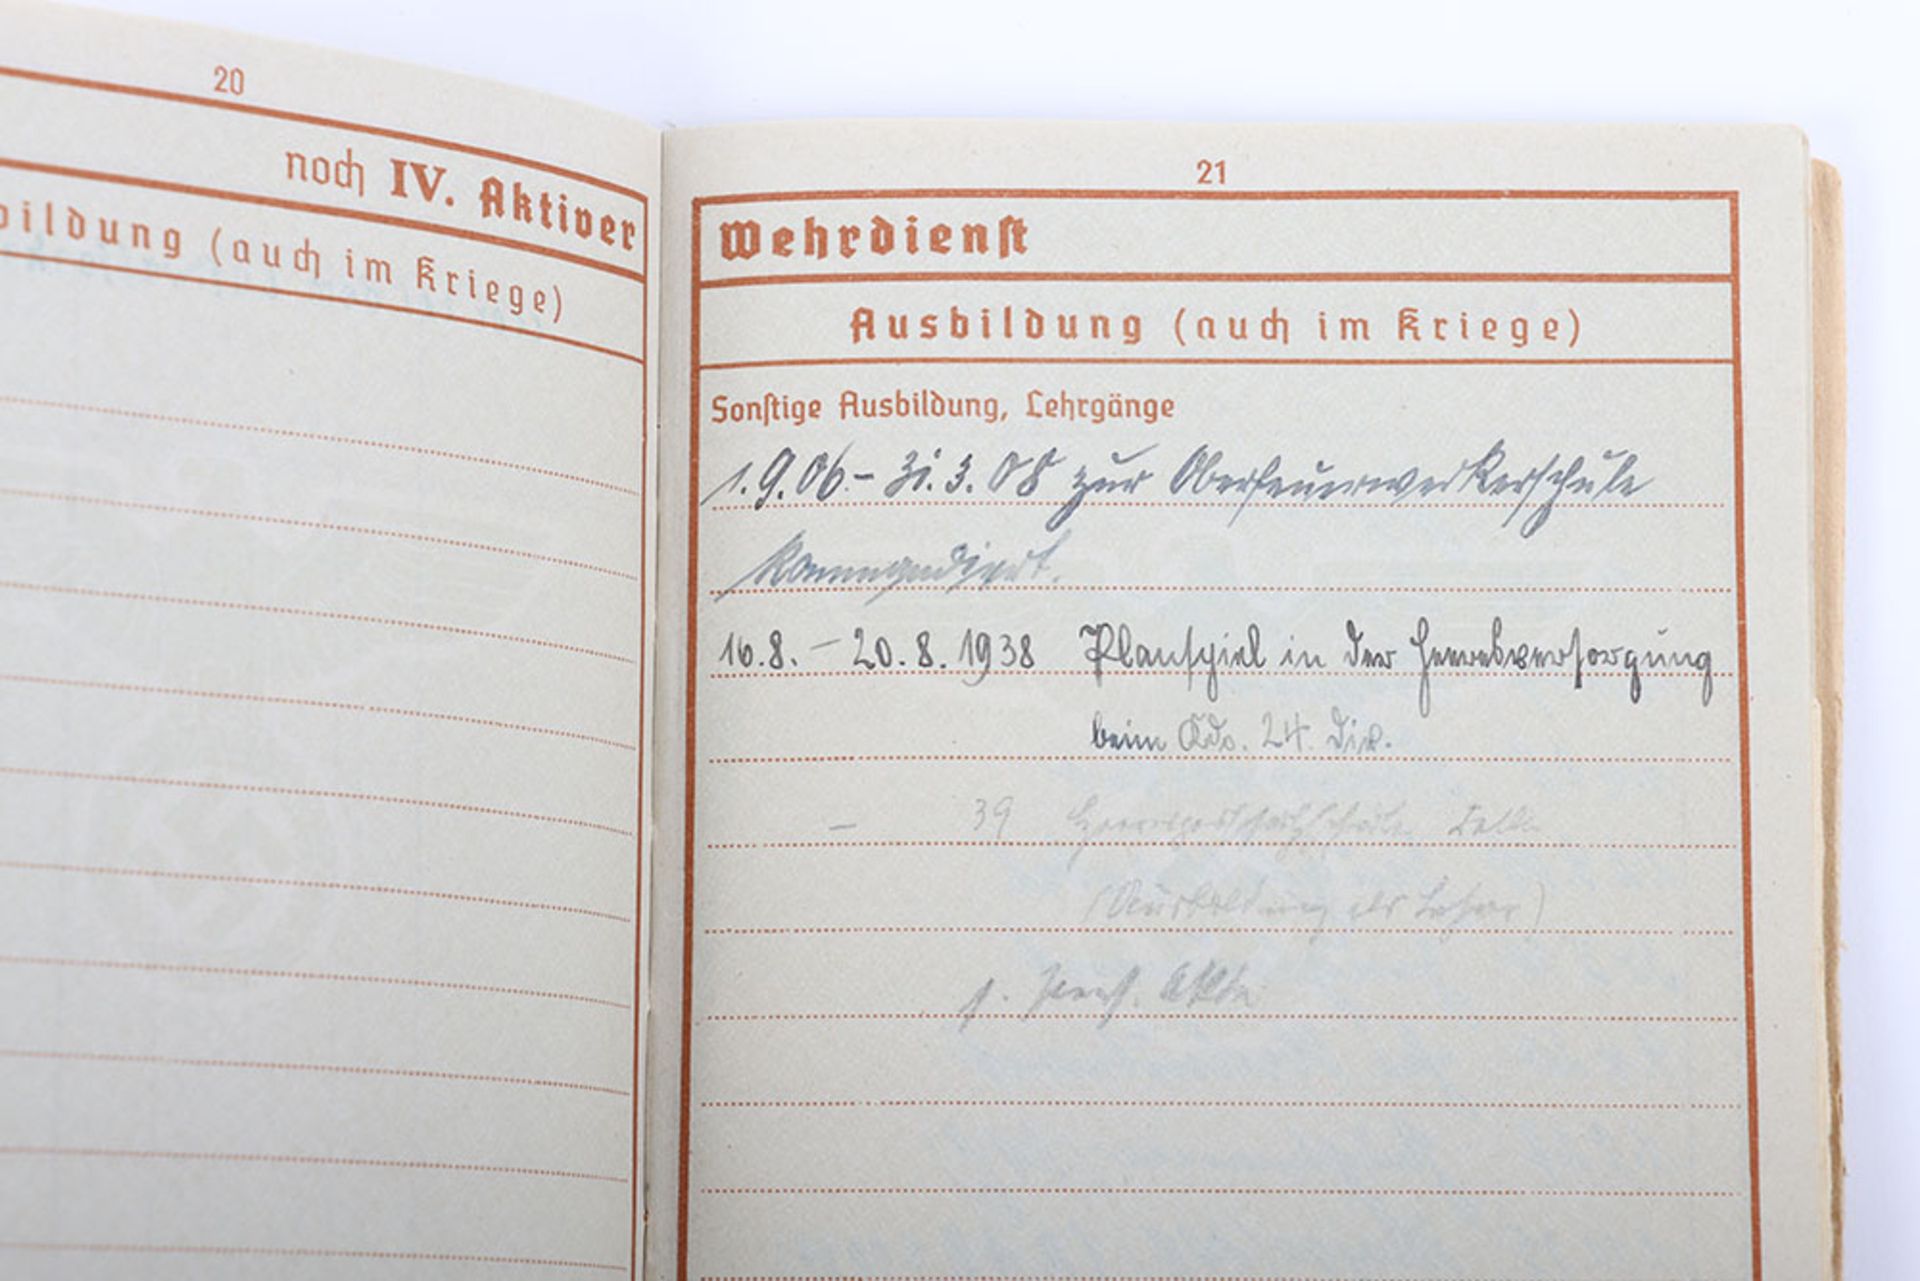 20
noch IV. Aktiver
bildung (auch im Kriege)
21
Wehrdienst
Ausbildung (auch im Kriege)
Sonstige Ausbildung, Lehrgänge
1.9.06 - 31.3.08 zur Oberfeuerwerkerschule
kommandiert.
16.8. - 20.8.1938 Planspiel in der Heeresversorgung
beim Kdo. 24. Div.
- 39
(Ausbildung als